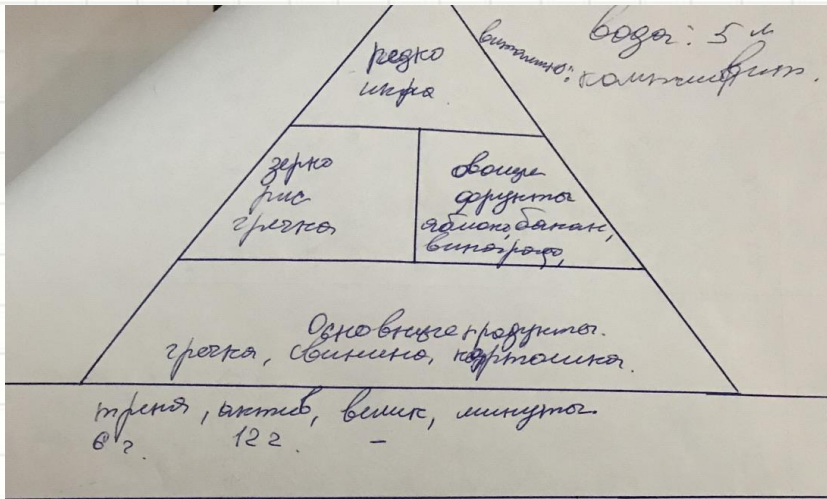 вода: 5 л
витамины: компливит.
редко
икра
зерно
рис
гречка
овощи
фрукты
яблоко, банан,
виноград,
Основные продукты.
гречка, свинина, картошка.
треня, актив, велик, минуты
6 г. 12 г. –